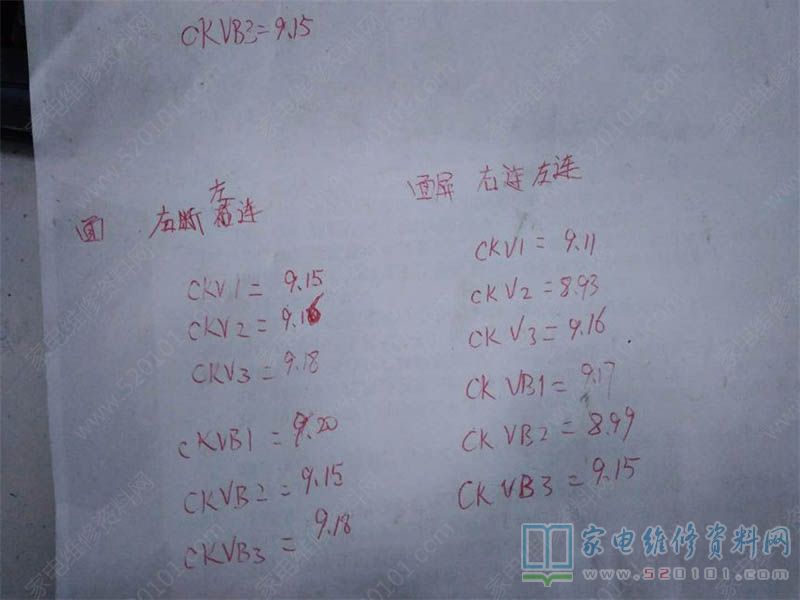 CKVB3=9.15
面 右断 左连
CKV1=9.15
CKV2=9.16
CKV3=9.18
CKVB1=9.20
CKVB2=9.15
CKVB3=9.18
面屏 右连 左连
CKV1=9.11
CKV2=8.93
CKV3=9.16
CKVB1=9.17
CKVB2=8.99
CKVB3=9.15
家电维修资料网
www.520101.com